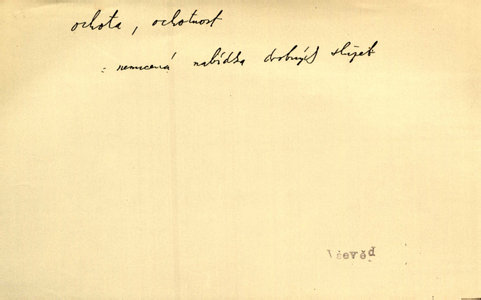 ochota, ochotnost
: nenucená nabídka drobných služeb
Vševěd